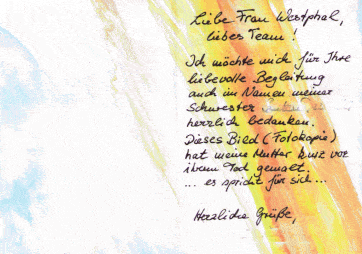 Liebe Frau Westphal,
liebes Team!
Ich möchte mich für Ihre
liebevolle Begleitung
auch im Namen meiner
Schwester
herzlich bedanken.
Dieses Bild (Fotokopie)
hat meine Mutter kurz vor
ihrem Tod gemalt.
... es spricht für sich ...
Herzliche Grüße,